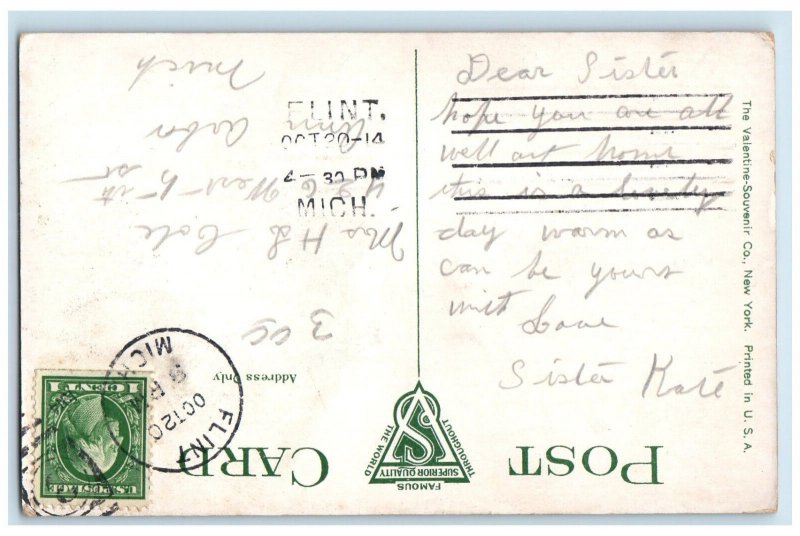 POST CARD
FAMOUS
THROUGHOUT
THE WORLD
SUPERIOR QUALITY
Address Only
The Valentine-Souvenir Co., New York. Printed in U. S. A.
Dear Sister
hope you are all
well at home
this is a lovely
day warm as
can be yours
with Love
Sister Kate
FLINT.
OCT 20-14
4-30 PM
MICH.
Mrs H L Cole
426 West
Ann Arbor
Mich
FLINT
OCT 20
MICH
U.S. POSTAGE
1 CENT 1